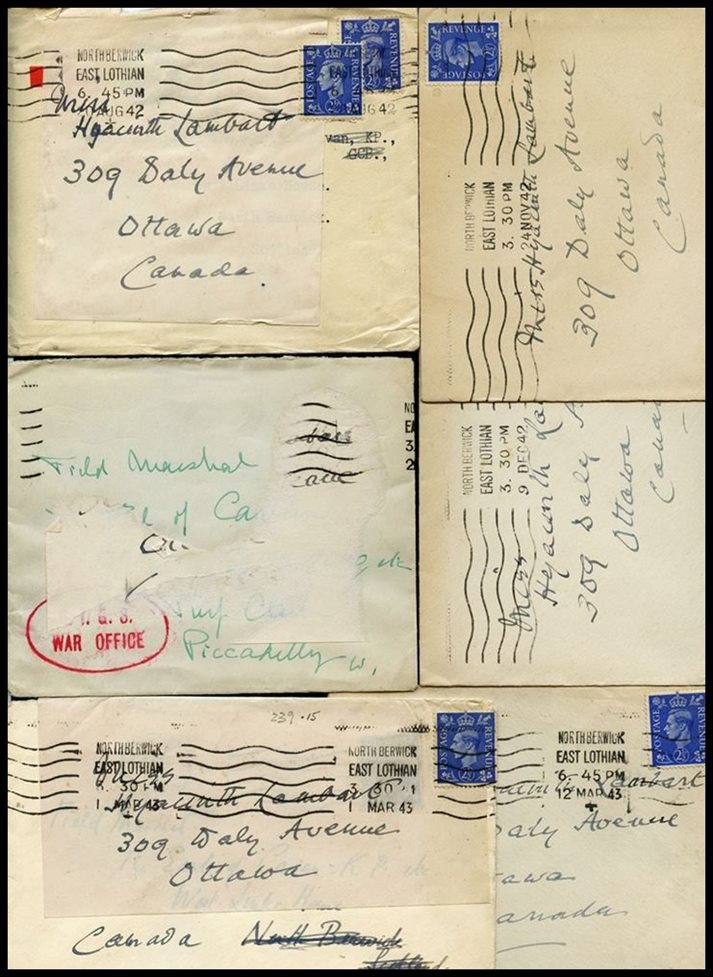 NORTH BERWICK
EAST LOTHIAN
6. 45 PM
AUG 42
POSTAGE
REVENUE
2½
AUG 42
Miss
Hyacinth Lambart
van, KP.,
GCB.,
309 Daly Avenue
Ottawa
Canada.
REVENUE
POSTAGE
NORTH BERWICK
EAST LOTHIAN
3. 30 PM
24 NOV 42
Miss Hyacinth Lambart
309 Daly Avenue
Ottawa
Canada
Field Marshal
of Ca
Turf
Piccadilly W.
WAR OFFICE
NORTH BERWICK
EAST LOTHIAN
3. 30 PM
9 DEC 42
Miss
Hyacinth
309 Daly
Ottawa
239-15
NORTH BERWICK
EAST LOTHIAN
30 PM
1 MAR 43
NORTH BERWICK
EAST LOTHIAN
3 30
1 MAR 43
POSTAGE
REVENUE
2½
Hyacinth Lambart
309 Daly Avenue
Ottawa
Canada
North Berwick
Scotland
NORTH BERWICK
EAST LOTHIAN
6. 45 PM
12 MAR 43
POSTAGE
REVENUE
2½
Lambart
Daly Avenue
tawa
anada